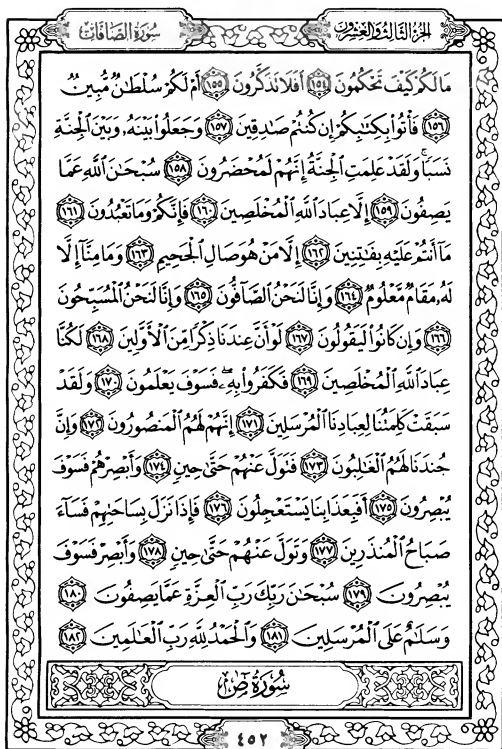 الجزء الثالث والعشرون
سورة الصافات
مَا لَكُمْ كَيْفَ تَحْكُمُونَ ١٥٤ أَفَلَا تَذَكَّرُونَ ١٥٥ أَمْ لَكُمْ سُلْطَانٌ مُّبِينٌ
١٥٦ فَأْتُوا بِكِتَابِكُمْ إِن كُنتُمْ صَادِقِينَ ١٥٧ وَجَعَلُوا بَيْنَهُ وَبَيْنَ الْجِنَّةِ
نَسَبًا ۚ وَلَقَدْ عَلِمَتِ الْجِنَّةُ إِنَّهُمْ لَمُحْضَرُونَ ١٥٨ سُبْحَانَ اللَّهِ عَمَّا
يَصِفُونَ ١٥٩ إِلَّا عِبَادَ اللَّهِ الْمُخْلَصِينَ ١٦٠ فَإِنَّكُمْ وَمَا تَعْبُدُونَ ١٦١
مَا أَنتُمْ عَلَيْهِ بِفَاتِنِينَ ١٦٢ إِلَّا مَنْ هُوَ صَالِ الْجَحِيمِ ١٦٣ وَمَا مِنَّا إِلَّا
لَهُ مَقَامٌ مَّعْلُومٌ ١٦٤ وَإِنَّا لَنَحْنُ الصَّافُّونَ ١٦٥ وَإِنَّا لَنَحْنُ الْمُسَبِّحُونَ
١٦٦ وَإِن كَانُوا لَيَقُولُونَ ١٦٧ لَوْ أَنَّ عِندَنَا ذِكْرًا مِّنَ الْأَوَّلِينَ ١٦٨ لَكُنَّا
عِبَادَ اللَّهِ الْمُخْلَصِينَ ١٦٩ فَكَفَرُوا بِهِ ۖ فَسَوْفَ يَعْلَمُونَ ١٧٠ وَلَقَدْ
سَبَقَتْ كَلِمَتُنَا لِعِبَادِنَا الْمُرْسَلِينَ ١٧١ إِنَّهُمْ لَهُمُ الْمَنصُورُونَ ١٧٢ وَإِنَّ
جُندَنَا لَهُمُ الْغَالِبُونَ ١٧٣ فَتَوَلَّ عَنْهُمْ حَتَّىٰ حِينٍ ١٧٤ وَأَبْصِرْهُمْ فَسَوْفَ
يُبْصِرُونَ ١٧٥ أَفَبِعَذَابِنَا يَسْتَعْجِلُونَ ١٧٦ فَإِذَا نَزَلَ بِسَاحَتِهِمْ فَسَاءَ
صَبَاحُ الْمُنذَرِينَ ١٧٧ وَتَوَلَّ عَنْهُمْ حَتَّىٰ حِينٍ ١٧٨ وَأَبْصِرْ فَسَوْفَ
يُبْصِرُونَ ١٧٩ سُبْحَانَ رَبِّكَ رَبِّ الْعِزَّةِ عَمَّا يَصِفُونَ ١٨٠
وَسَلَامٌ عَلَى الْمُرْسَلِينَ ١٨١ وَالْحَمْدُ لِلَّهِ رَبِّ الْعَالَمِينَ ١٨٢
سورة ص
٤٥٢